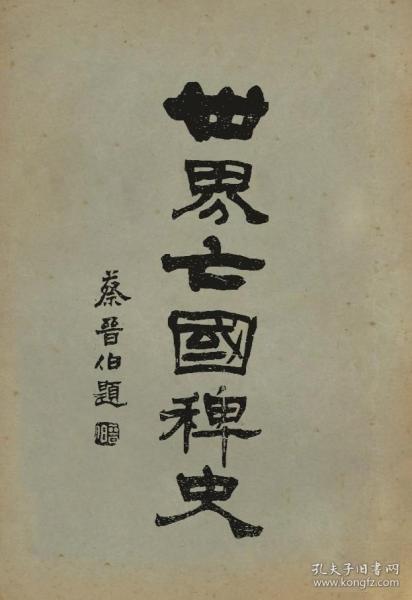 世界亡國稗史
蔡晉伯題
孔夫子旧书网
www.kongfz.com